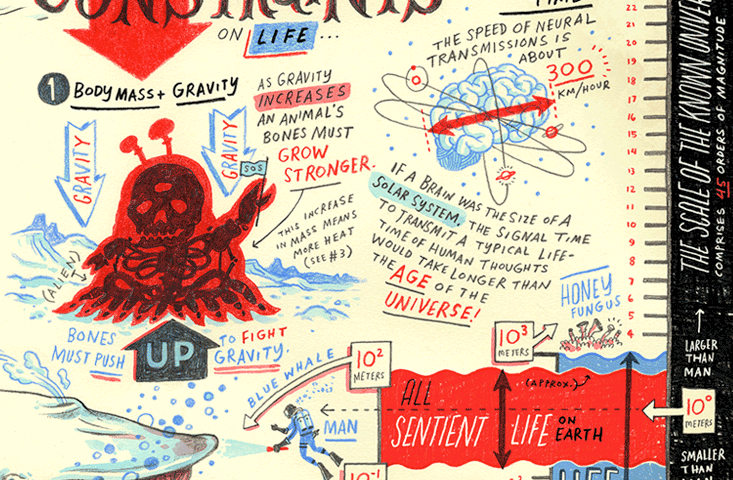 CONSTRAINTS
ON LIFE ...
TIME
1 BODY MASS + GRAVITY
GRAVITY
GRAVITY
SOS
AS GRAVITY
INCREASES
AN ANIMAL'S
BONES MUST
GROW
STRONGER.
THIS INCREASE
IN MASS MEANS
MORE HEAT
(SEE #3)
(ALIEN)
BONES
MUST PUSH
UP
TO FIGHT
GRAVITY.
THE SPEED OF NEURAL
TRANSMISSIONS IS
ABOUT
300
KM/HOUR
IF A BRAIN WAS THE SIZE OF A
SOLAR SYSTEM, THE SIGNAL TIME
TO TRANSMIT A TYPICAL LIFE-
TIME OF HUMAN THOUGHTS
WOULD TAKE LONGER THAN
THE AGE OF THE
UNIVERSE!
HONEY
FUNGUS
10³
METERS
BLUE WHALE
10²
METERS
MAN
(APPROX.)
ALL
SENTIENT LIFE ON
EARTH
LIFE
10⁻¹
22
21
20
19
18
17
16
15
14
13
12
11
10
9
8
7
6
5
4
THE SCALE OF THE KNOWN UNIVER
COMPRISES 45 ORDERS OF MAGNITUDE
LARGER
THAN
MAN
10⁰
METERS
SMALLER
THAN